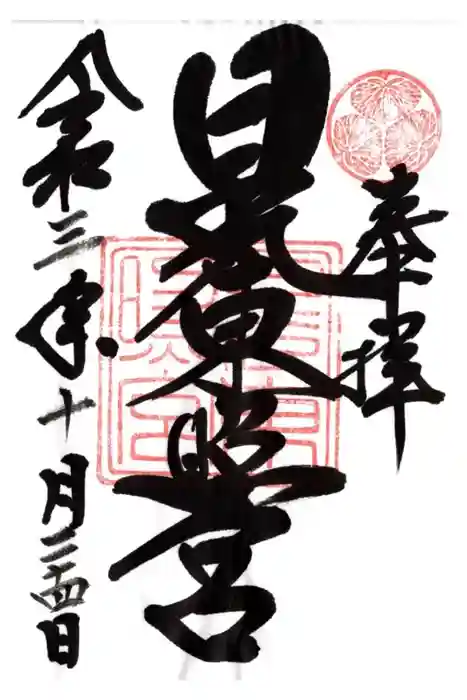 奉拝
日光東照宮
令和三年十月二十四日